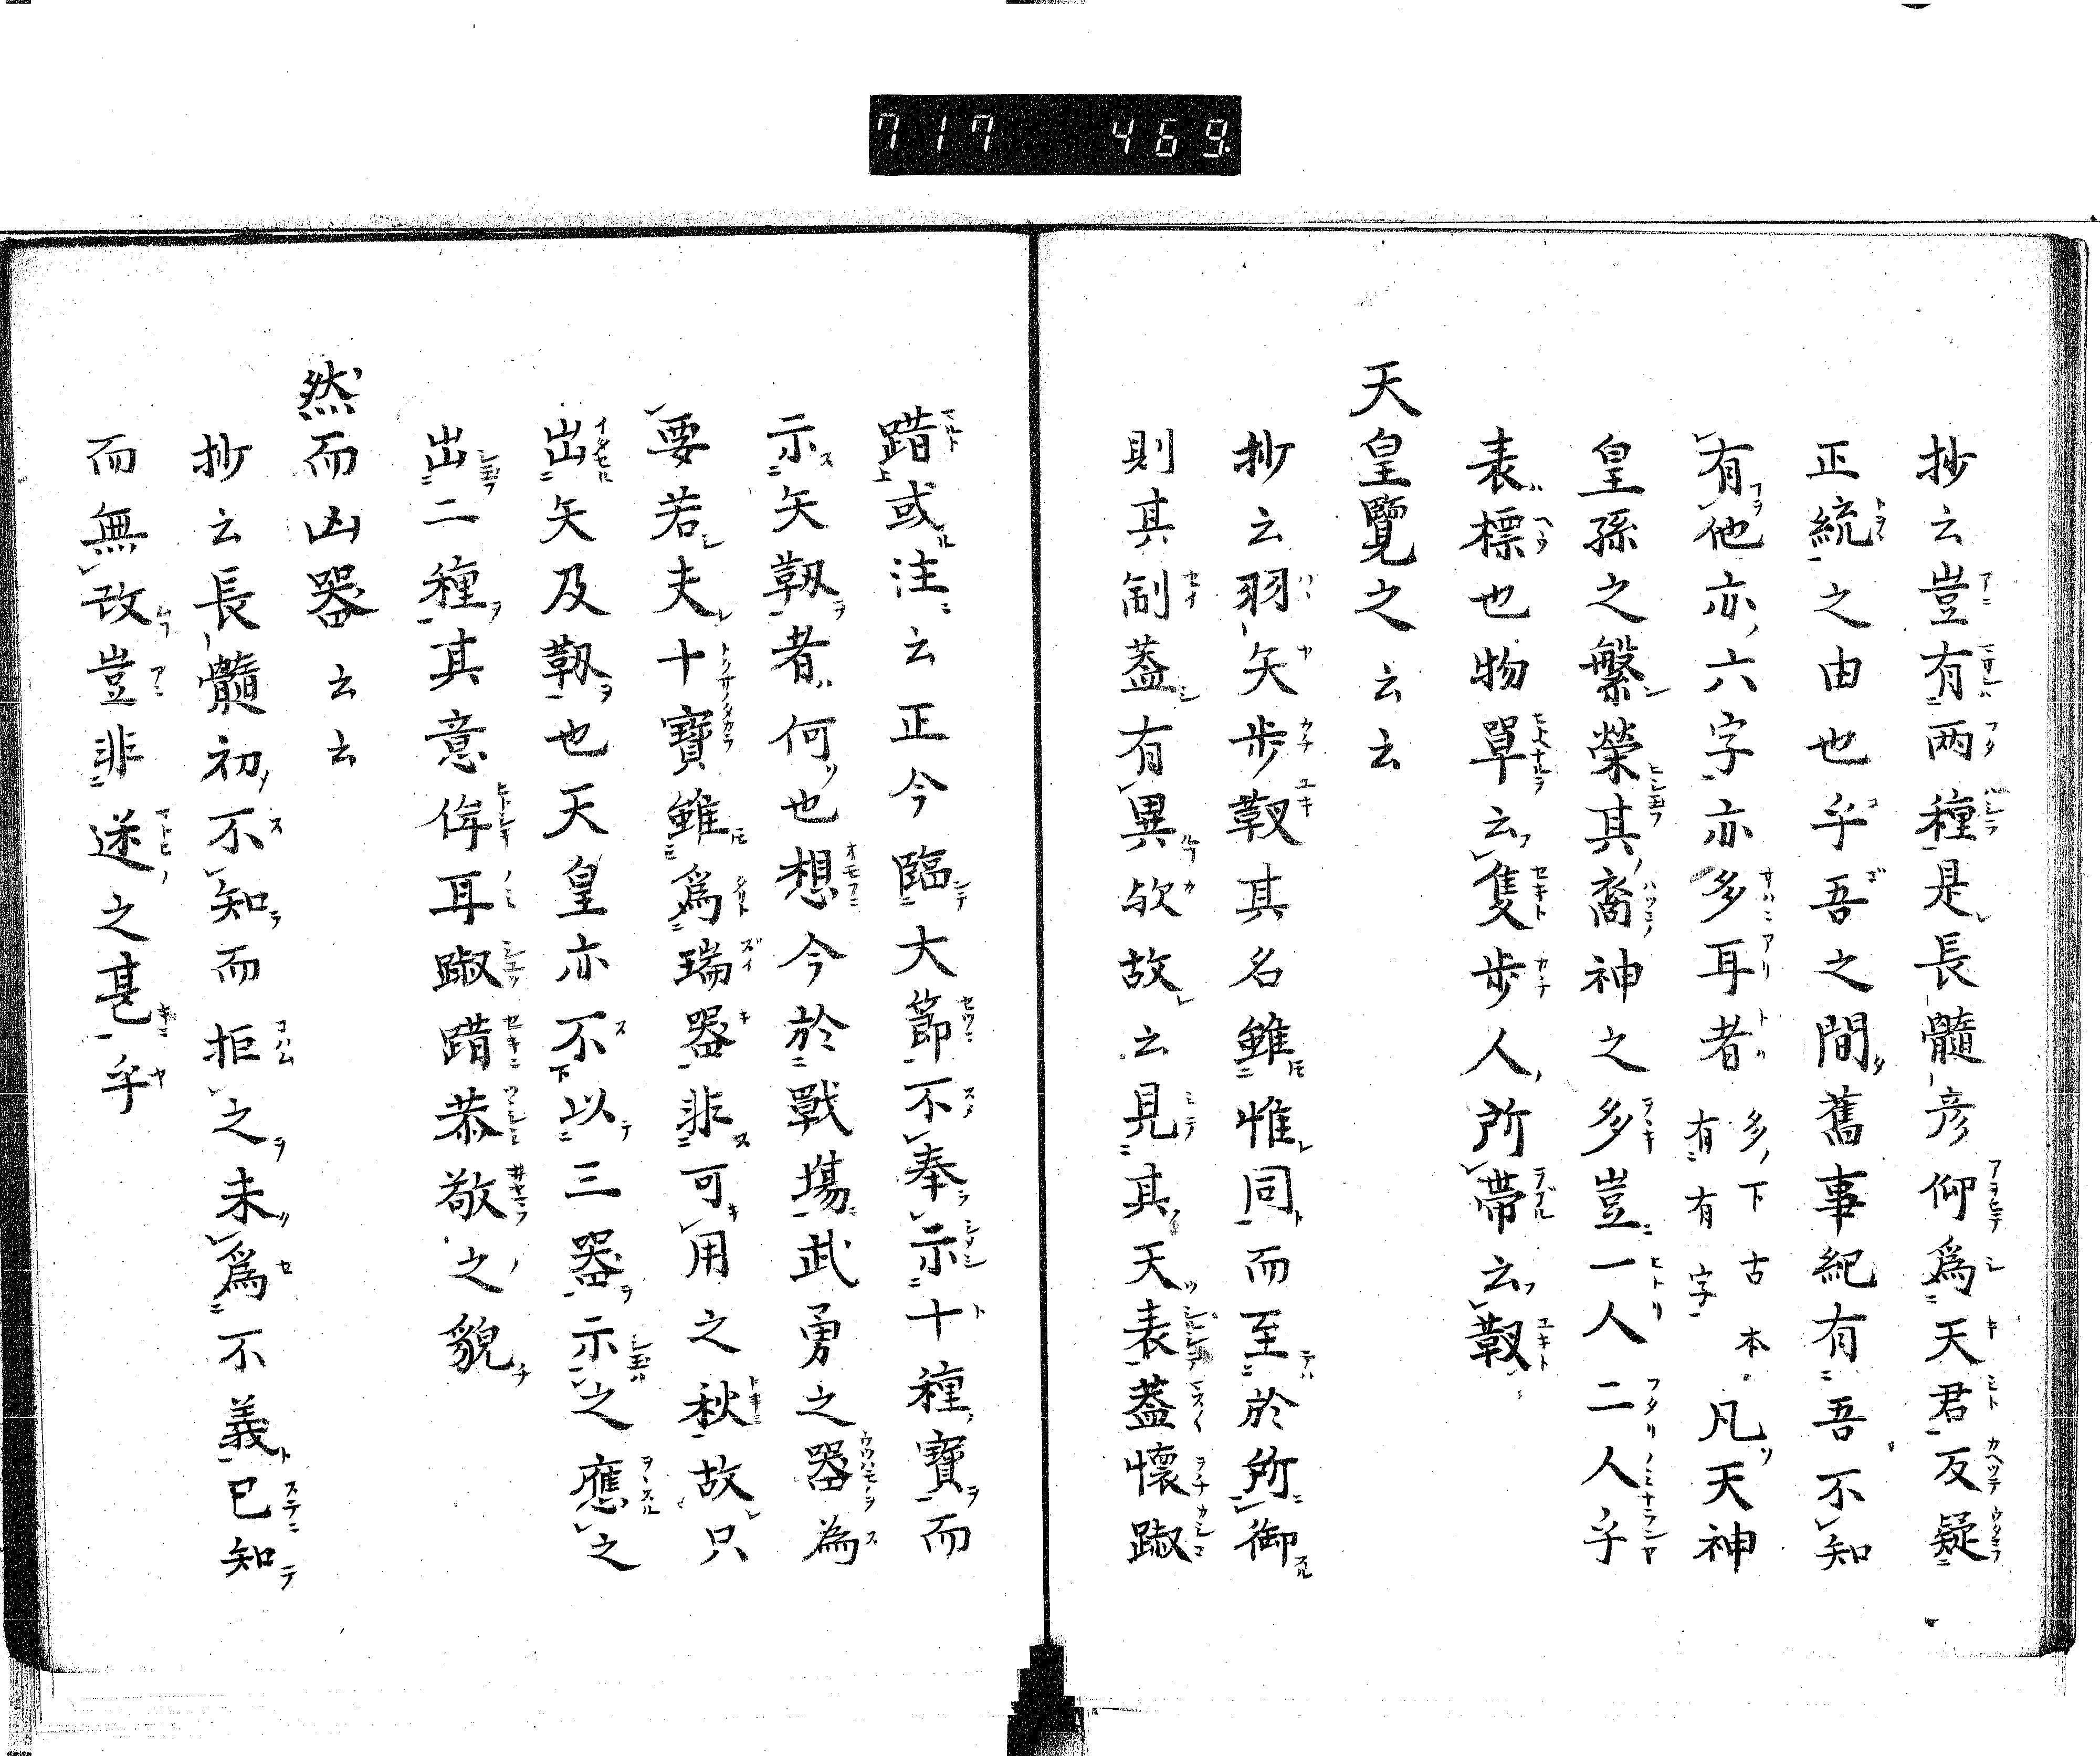 717 469.
抄云豈有兩種是長髓彦仰爲天君反疑
正統之由也乎吾之間舊事紀有吾不知
有他亦六字亦多耳者多下古本有有字凡天神
皇孫之繁榮其裔神之多豈一人二人乎
表標也物單云隻歩人所帶云靫
天皇覽之云云
抄云羽矢歩靫其名雖惟同而至於所御
則其制蓋有異欤故云見其天表蓋懷踧
踖或注云正今臨大節不奉示十種寶而
示矢靱者何也想今於戰場武勇之器為
要若夫十寶雖爲瑞器非可用之秋故只
出矢及靱也天皇亦不以三器示之應之
出二種其意侔耳踧踖恭敬之貌
然而凶器云云
抄云長髓初不知而拒之未爲不義已知
而無改豈非迷之甚乎